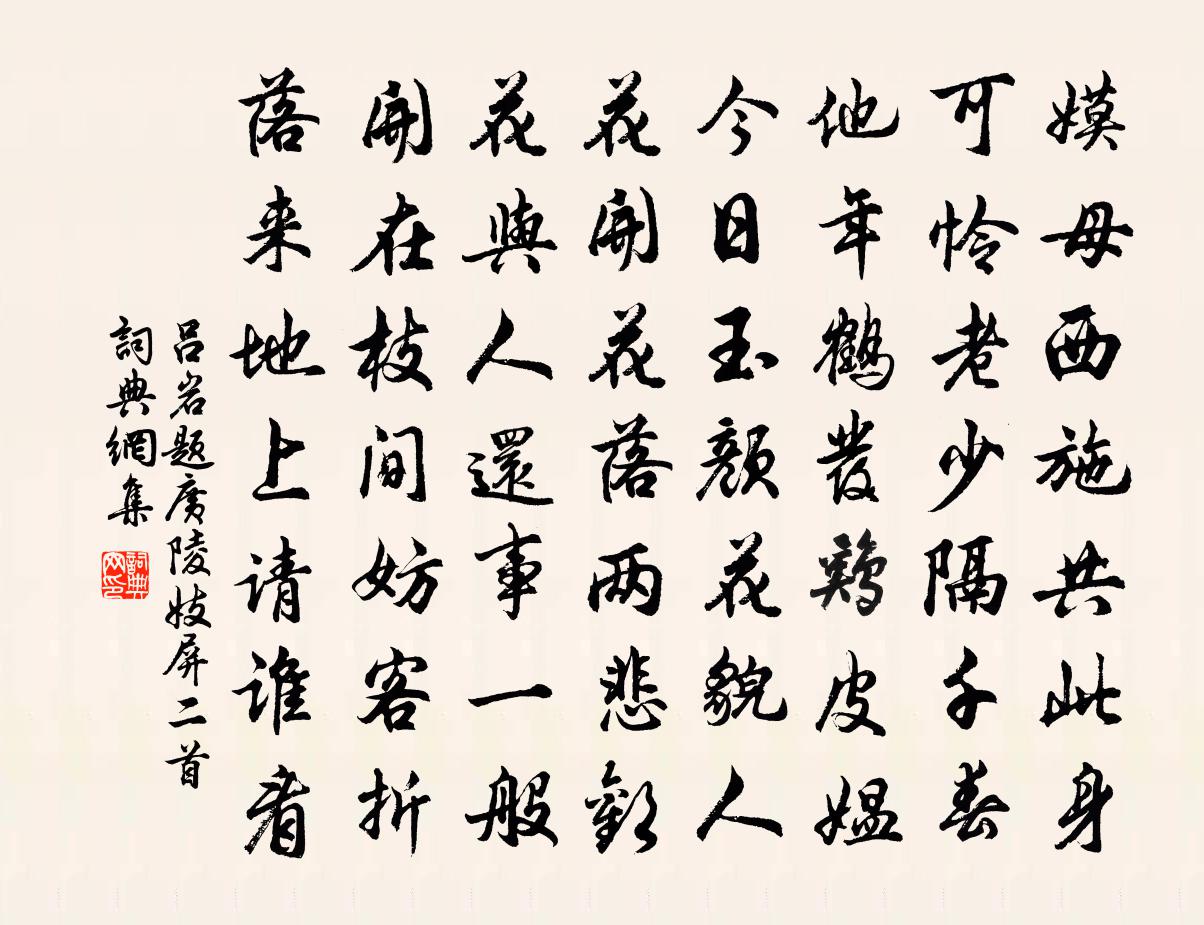 嫫母西施共此身
可怜老少隔千春
他年鹤發鶏皮媼
今日玉颜花貌人
花開花落两悲歡
花與人還事一般
開在枝間妨客折
落来地上请谁看
吕岩题廣陵妓屏二首
詞典網集
詞典网印